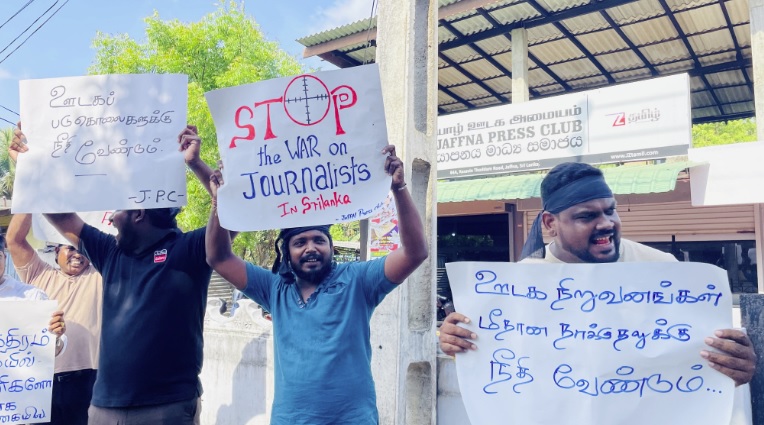 ஊடகப்
படுகொலைகளுக்கு
நீதி வேண்டும்.
-J.P.C-
STOP
the WAR on
JOURNALISTS
IN Srilanka
யாழ் ஊடக அமையம்
JAFFNA PRESS CLUB
යාපනය මාධ්‍ය සමාජය
தமிழ்
ஊடக நிறுவனங்கள்
மீதான தாக்குதலுக்கு
நீதி வேண்டும்...